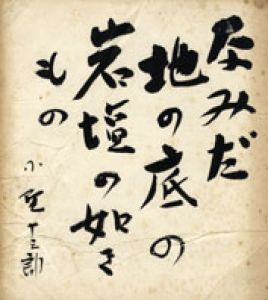 なみだ
地の底の
岩塩の如き
もの
小野十三郎